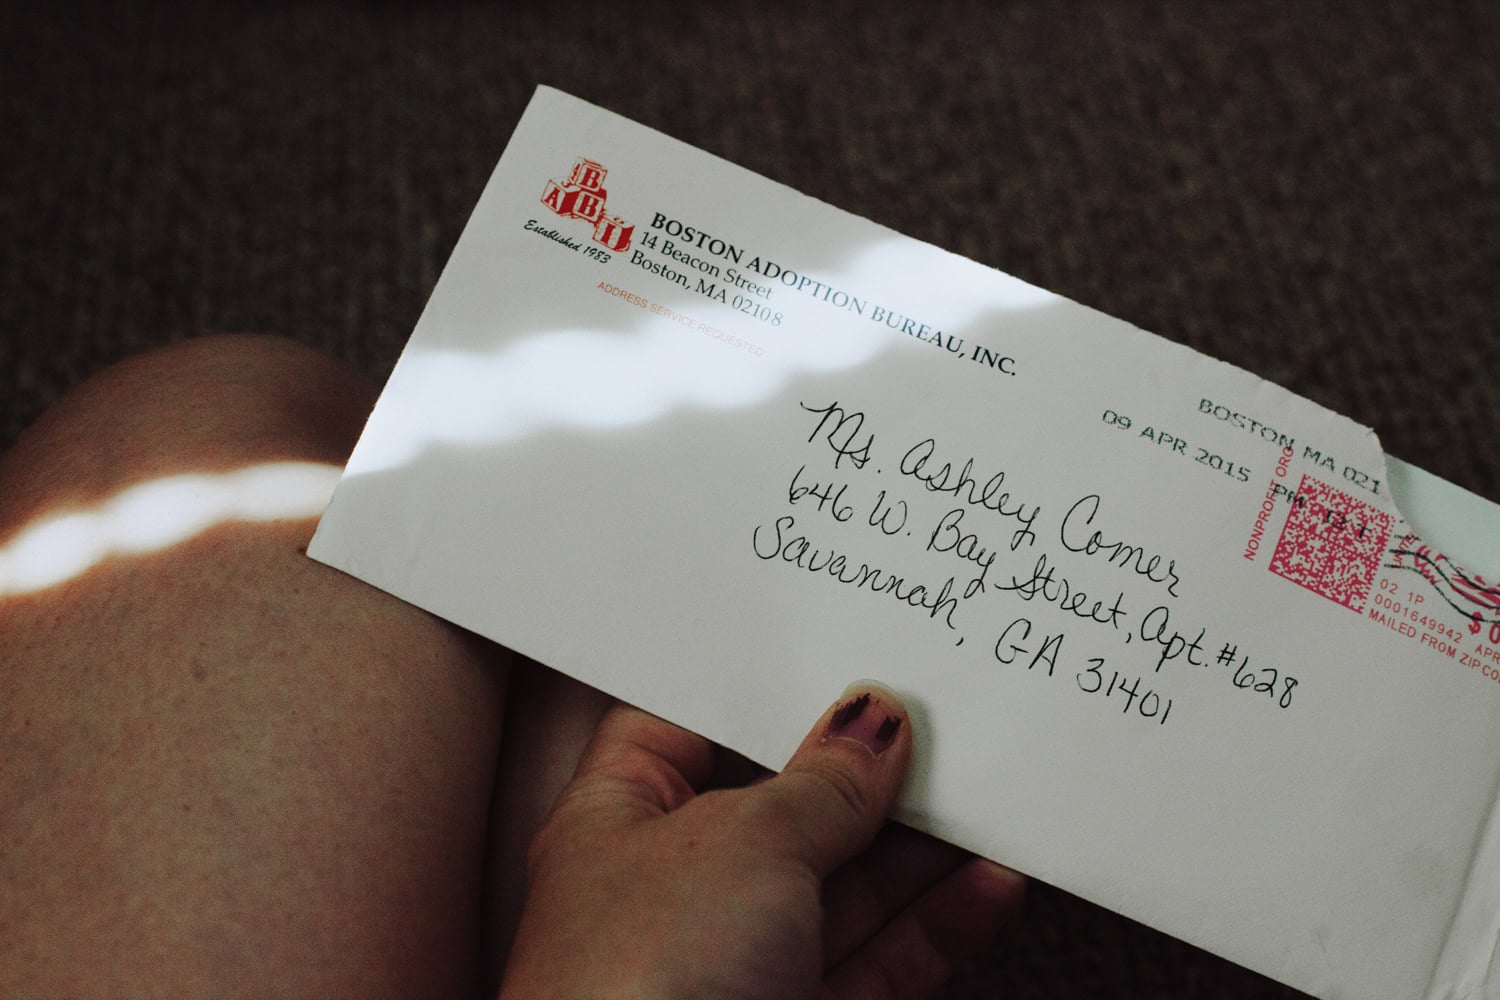 B
A B
I
Established 1983
BOSTON ADOPTION BUREAU, INC.
14 Beacon Street
Boston, MA 02108
ADDRESS SERVICE REQUESTED
BOSTON MA 021
09 APR 2015 PM 13 T
NONPROFIT ORG
Ms. Ashley Comer
646 W. Bay Street, Apt. #628
Savannah, GA 31401
02 1P
0001649942 APR
MAILED FROM ZIP CO
$ 0